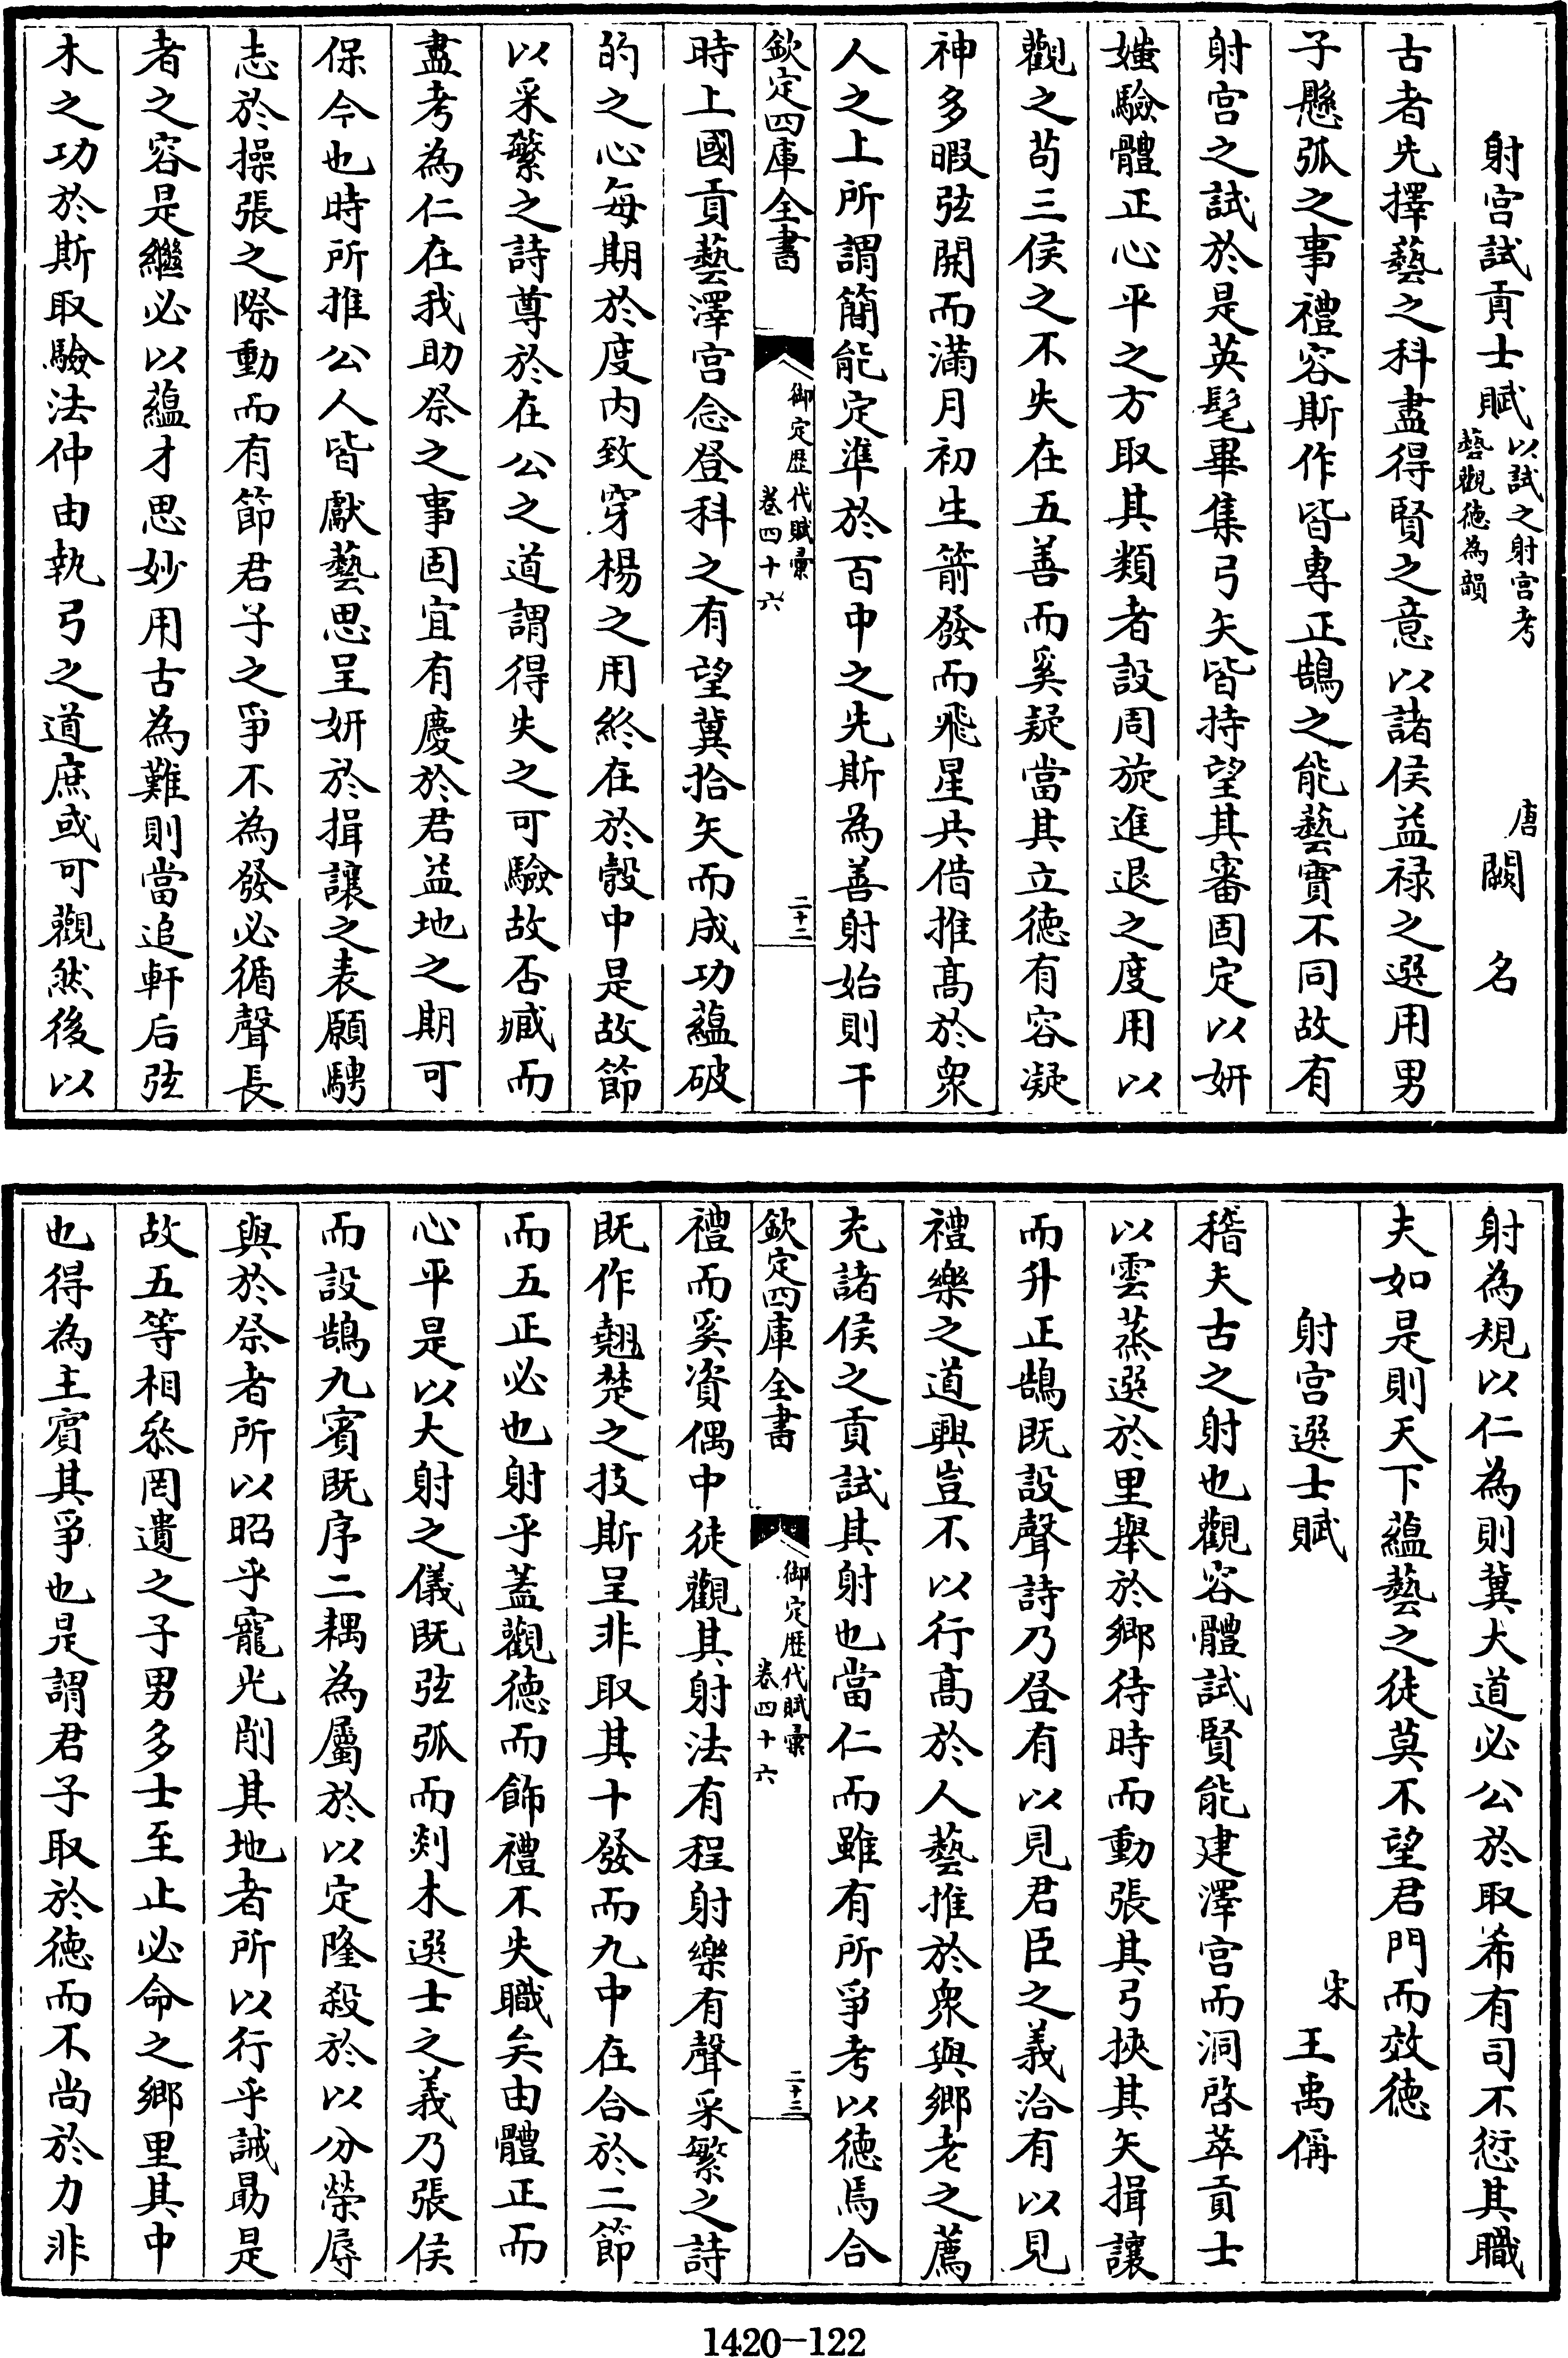 射宫試貢士賦以試之射宫考藝觀徳為韻　唐闕名
古者先擇藝之科盡得賢之意以諸侯益禄之選用男
子懸弧之事禮容斯作皆專正鵠之能藝實不同故有
射宫之試於是英髦畢集弓矢皆持望其審固定以妍
媸驗體正心平之方取其類者設周旋進退之度用以
觀之茍三侯之不失在五善而奚疑當其立徳有容凝
神多暇弦開而滿月初生箭發而飛星共借推髙於衆
人之上所謂簡能定準於百中之先斯為善射始則干
欽定四庫全書
御定歴代賦彙
卷四十六
二十二
時上國貢藝澤宫念登科之有望冀拾矢而成功藴破
的之心每期於度内致穿楊之用終在於彀中是故節
以采蘩之詩尊於在公之道謂得失之可驗故否臧而
盡考為仁在我助祭之事固宜有慶於君益地之期可
保今也時所推公人皆獻藝思呈妍於揖讓之表願騁
志於操張之際動而有節君子之爭不為發必循聲長
者之容是繼必以藴才思妙用古為難則當追軒后弦
木之功於斯取驗法仲由執弓之道庶或可觀然後以
射為規以仁為則冀大道必公於取希有司不愆其職
夫如是則天下藴藝之徒莫不望君門而效徳
射宫選士賦　宋王禹偁
稽夫古之射也觀容體試賢能建澤宫而洞啓萃貢士
以雲蒸選於里舉於鄉待時而動張其弓挾其矢揖讓
而升正鵠既設聲詩乃登有以見君臣之義洽有以見
禮樂之道興豈不以行髙於人藝推於衆與鄉老之薦
充諸侯之貢試其射也當仁而雖有所爭考以徳焉合
欽定四庫全書
御定歴代賦彙
卷四十六
二十三
禮而奚資偶中徒觀其射法有程射樂有聲采蘩之詩
既作翹楚之技斯呈非取其十發而九中在合於二節
而五正必也射乎蓋觀徳而飾禮不失職矣由體正而
心平是以大射之儀既弦弧而剡木選士之義乃張侯
而設鵠九賓既序二耦為屬於以定隆殺於以分榮辱
與於祭者所以昭乎寵光削其地者所以行乎誡勗是
故五等相叅罔遺之子男多士至止必命之鄉里其中
也得為主賓其爭也是謂君子取於徳而不尚於力非
1420-122